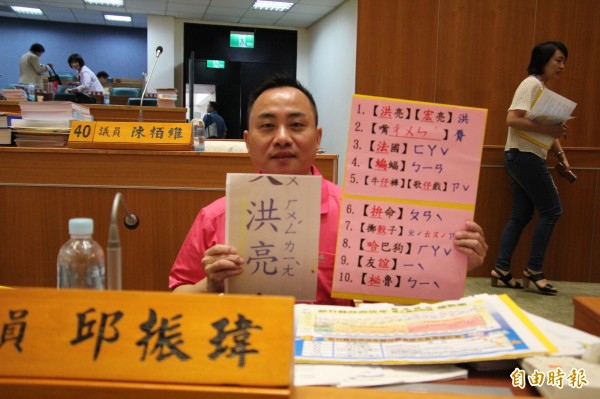 40 議員 陳栢維
洪 ㄏㄨㄥˊ
亮 ㄌㄧㄤ
1.【洪亮】【宏亮】洪
2.【嘴ㄔㄨㄣˊ】
3.【法國】ㄈㄚˇ
4.【蝙蝠】ㄅㄧㄢ
5.【牛仔褲】【歌仔戲】ㄗˇ
6.【拚命】ㄆㄢˋ
7.【擲骰子】
8.【哈巴狗】ㄏㄚˇ
9.【友誼】ㄧˋ
10.【祕魯】ㄅㄧˋ
員 邱振瑋
自由時報